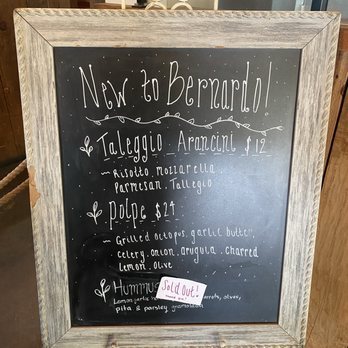 New to Bernardo!
Taleggio Arancini $12
~ Risotto, mozzarella,
Parmesan, Tallegio
Polpe $24
~ Grilled octopus, garlic butter,
celery, onion, arugula, charred
lemon, olive
Hummus
Sold Out!
Lemon garlic carrots, olives,
pita & parsley